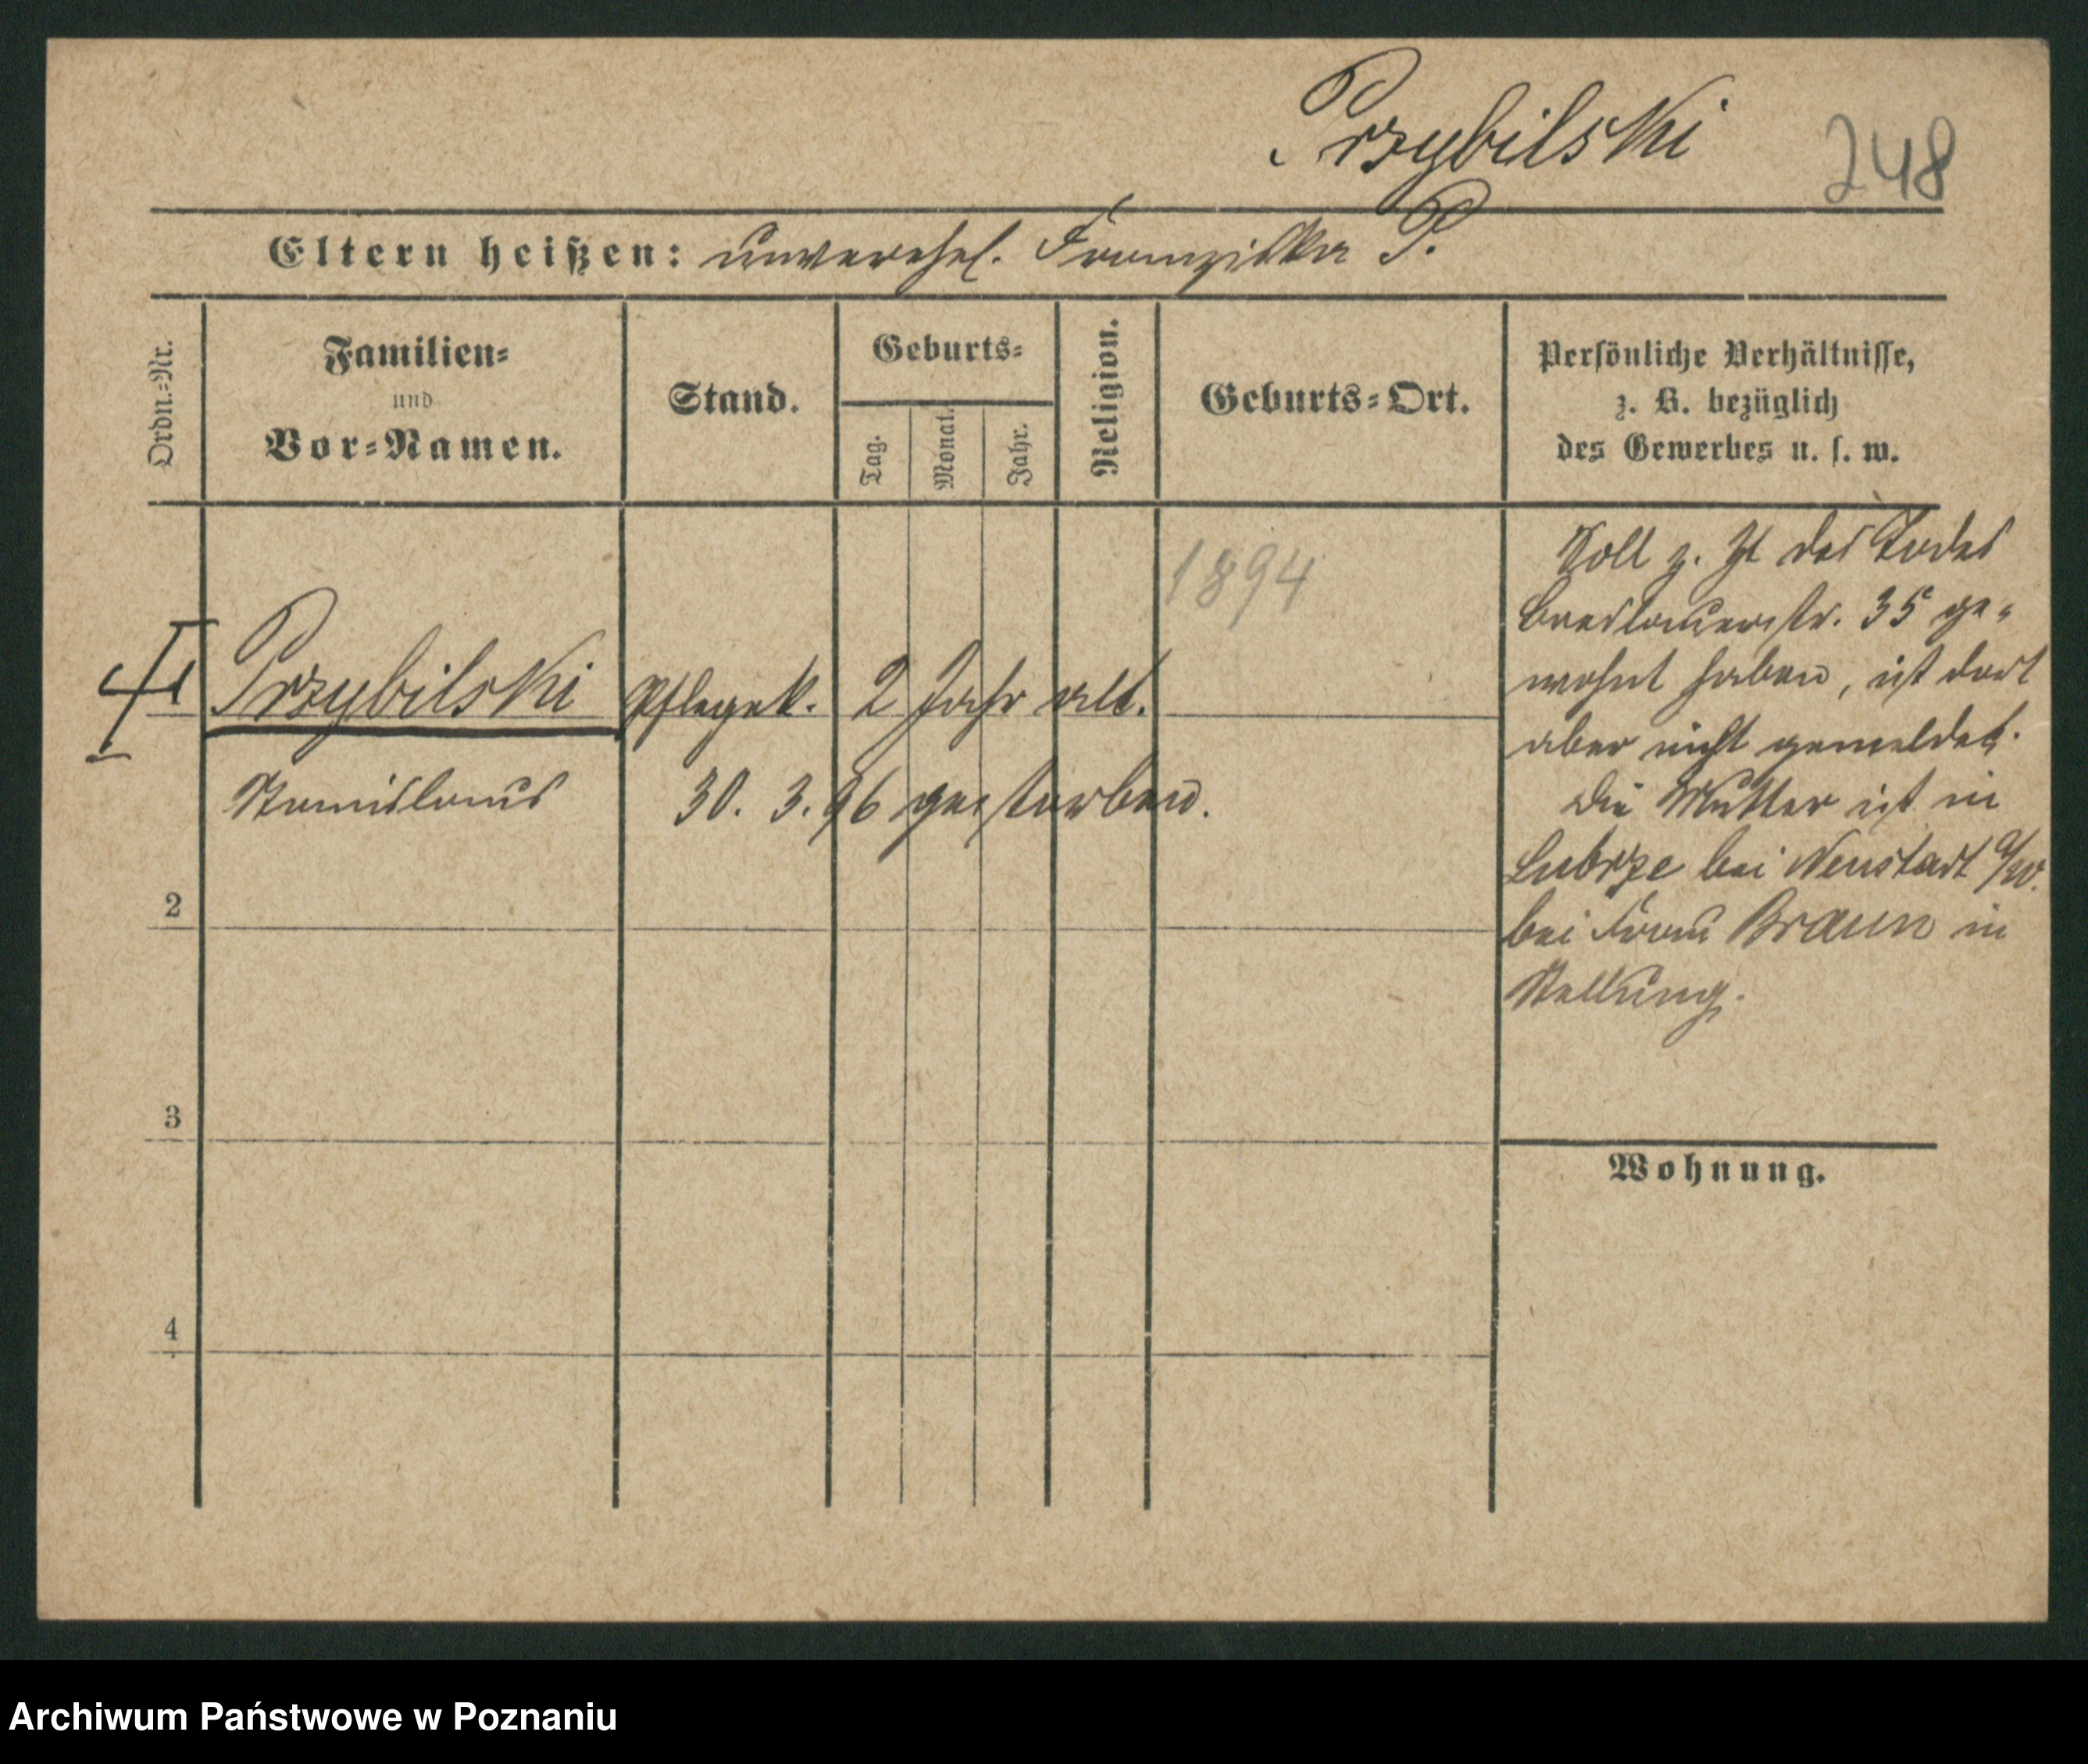 Przybilski 248
Eltern heißen: unverehel. Franziska P.
Ordn.-Nr.
Familien-
und
Vor-Namen.
Stand.
Geburts-
Tag.
Monat.
Jahr.
Religion.
Geburts-Ort.
Persönliche Verhältnisse,
z. B. bezüglich
des Gewerbes u. s. w.
1894
1 Przybilski Pflegek. 2 Jahr alt.
Stanislaus 30. 3. 96 gestorben.
2
3
4
Soll z. Zt des Todes
Breslauerstr. 35 ge-
wohnt haben, ist dort
aber nicht gemeldet.
Die Mutter ist in
Lubrze bei Neustadt a/W.
bei Frau Braun in
Stellung.
Wohnung.
Archiwum Państwowe w Poznaniu